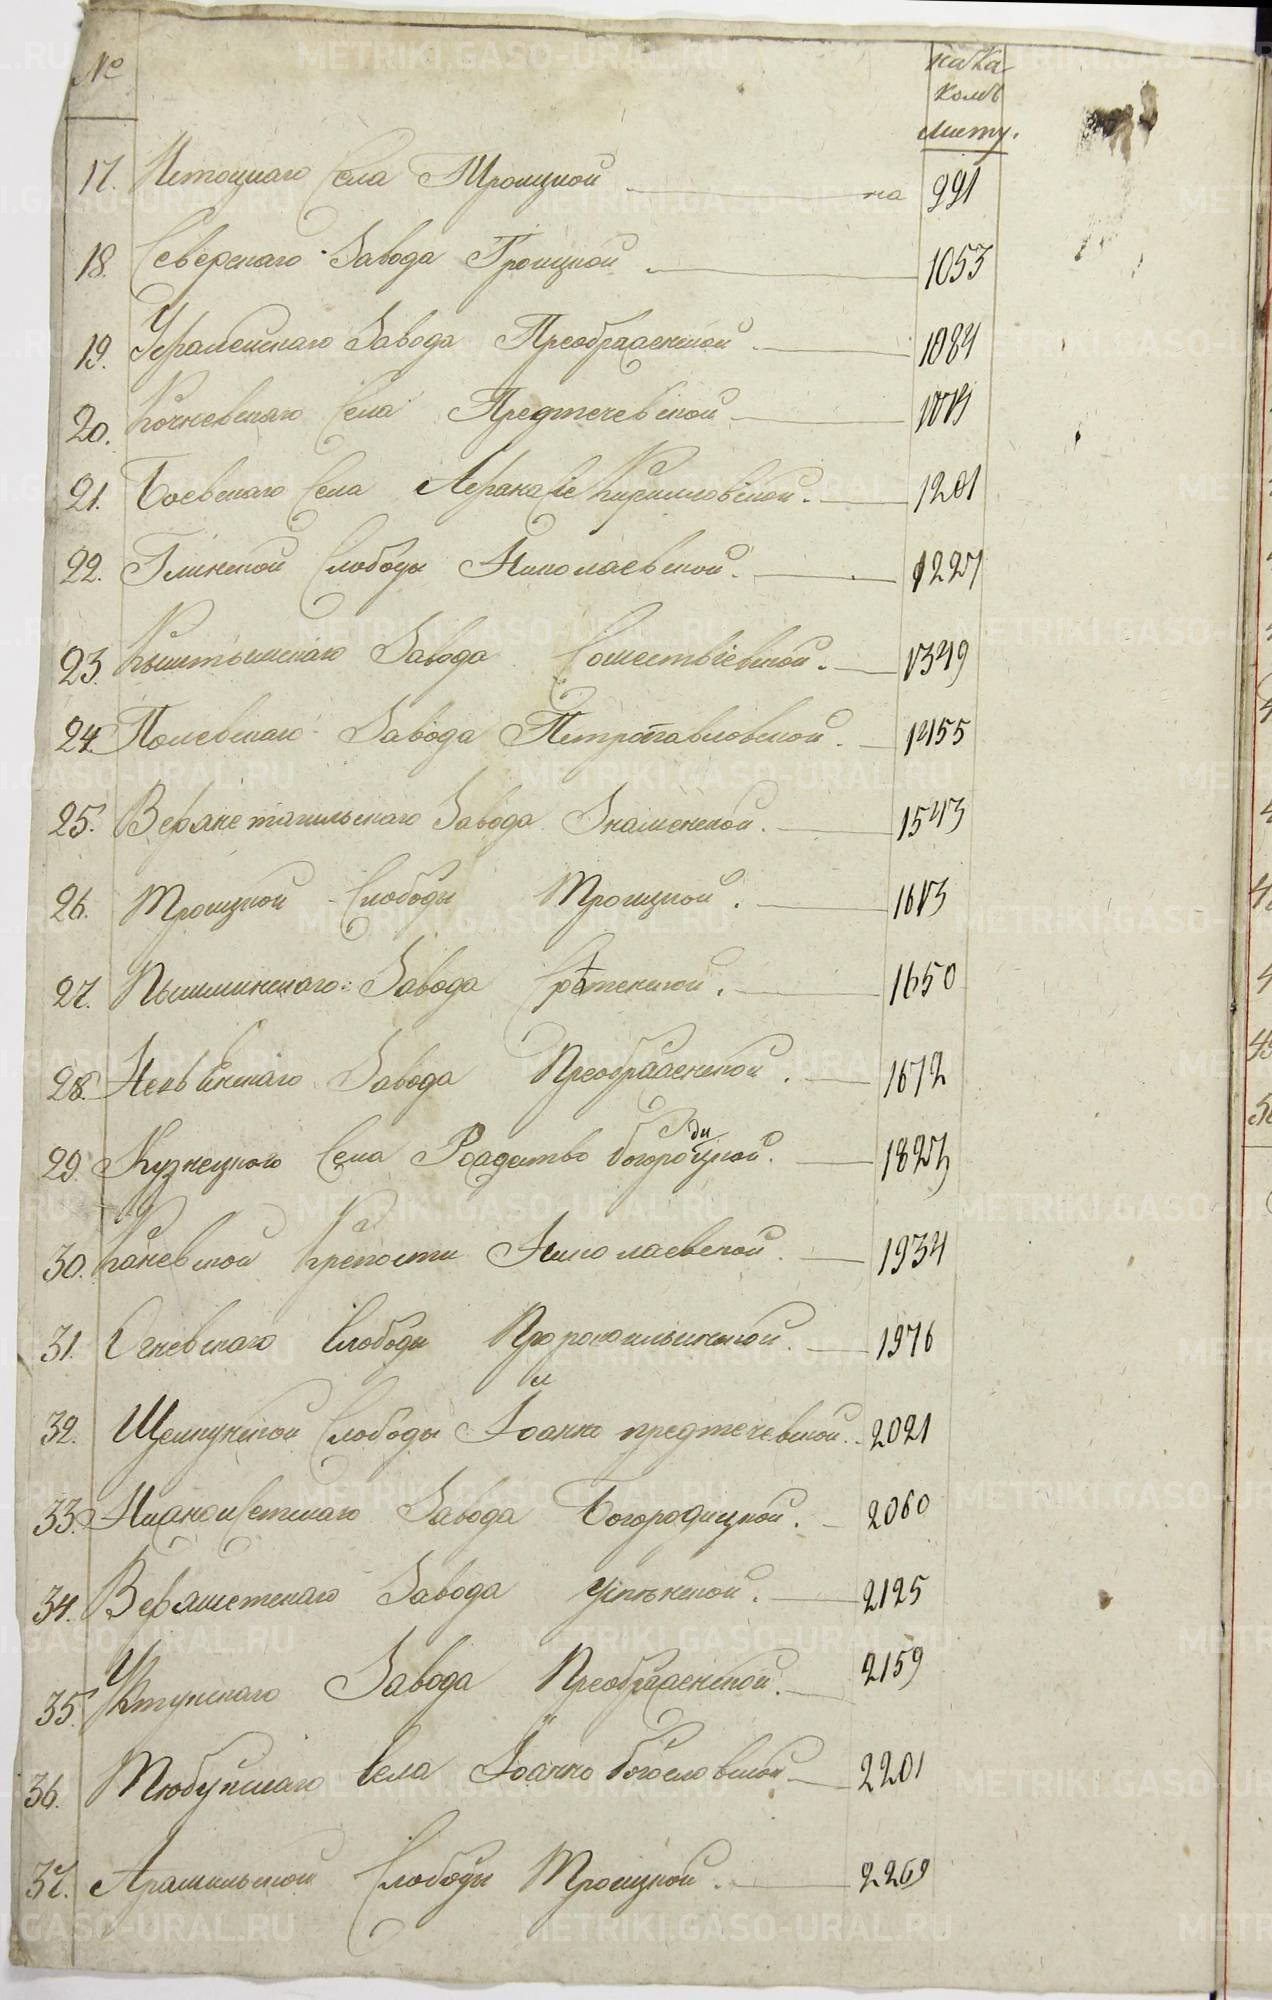 №
на ка
комъ
листу.
17. Истоцкаго Села Троицкой на 991
18. Северскаго Завода Троицкой 1053
19. Уфалейскаго Завода Преображенской 1084
20. Кочневскаго Села Предтечевской
21. Боевскаго Села Афанасіе Кириловской. 1201
22. Глинской Слободы Николаевской. 1227
23. Кыштымскаго Завода Сошествіевской. 1349
24. Полевскаго Завода Петропавловской. 1455
25. Верхнетагильскаго Завода Знаменской. 1543
26. Троицкой Слободы Троицкой. 1613
27. Пышминскаго Завода Срѣтенской. 1650
28. Невьянскаго Завода Преображенской. 1672
29. Кузнецкаго Села Рождество Богородицкой. 1827
30. Каневской крепости Николаевской. 1934
31. Огневскаго Слободы Пророкоильинской. 1976
32. Щелкунской Слободы Іоанно предтечевской. 2021
33. Нижноисетскаго Завода Богородицкой. 2060
34. Верхисетскаго Завода Успѣнской. 2125
35. Уктускаго Завода Преображенской. 2159
36. Тюбукскаго Села Іоанно богословской 2201
37. Арамильской Слободы Троицкой. 2269
METRIKI.GASO-URAL.RU